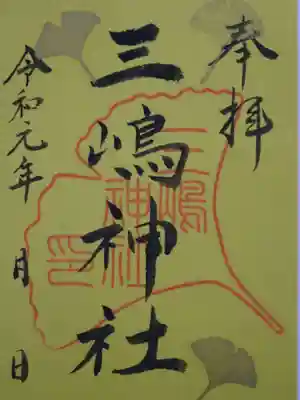 奉拝
三嶋神社
三嶋神社印
令和元年 月 日